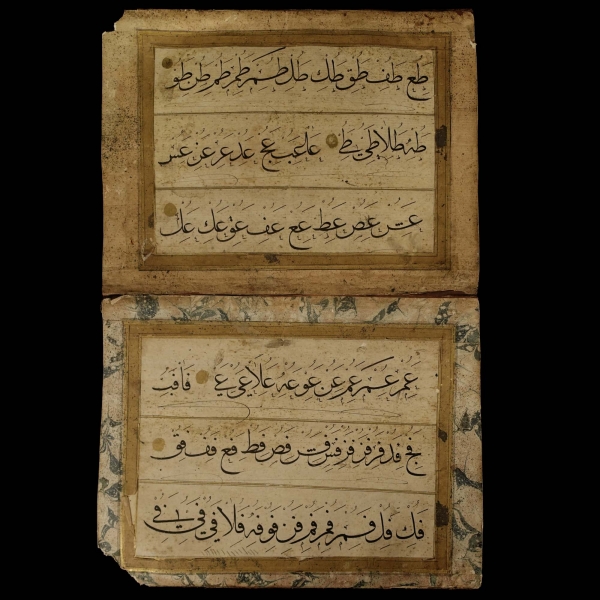 طع طف طق طك طل طم طم طم طن طو
طه طلا طي طي عا عب عج عد عر عر عس
عس عص عط عع عف عق عك عل
عم عم عم عن عو عه علا عي عي فا فب
فج فد فر فر فس فس فص فط فع فف فق
فك فل فم فم فم فن فو فه فلا في في في